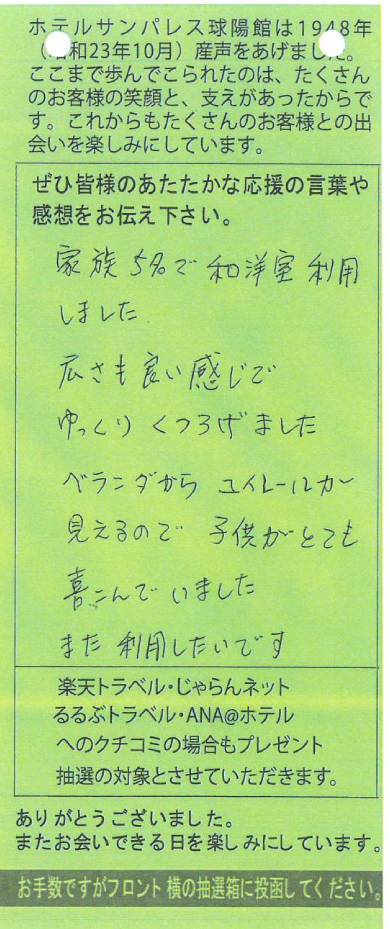 ホテルサンパレス球陽館は1948年
（昭和23年10月）産声をあげました。
ここまで歩んでこられたのは、たくさん
のお客様の笑顔と、支えがあったからで
す。これからもたくさんのお客様との出
会いを楽しみにしています。
ぜひ皆様のあたたかな応援の言葉や
感想をお伝え下さい。
家族5名で和洋室利用
しました
広さも良い感じで
ゆっくりくつろげました
ベランダから ユイレールが
見えるので 子供がとても
喜こんでいました
また利用したいです
楽天トラベル・じゃらんネット
るるぶトラベル・ANA@ホテル
へのクチコミの場合もプレゼント
抽選の対象とさせていただきます。
ありがとうございました。
またお会いできる日を楽しみにしています。
お手数ですがフロント横の抽選箱に投函してください。